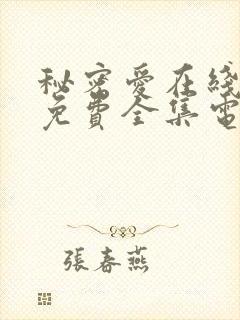 秘密愛在綫
免費全集電
張春燕